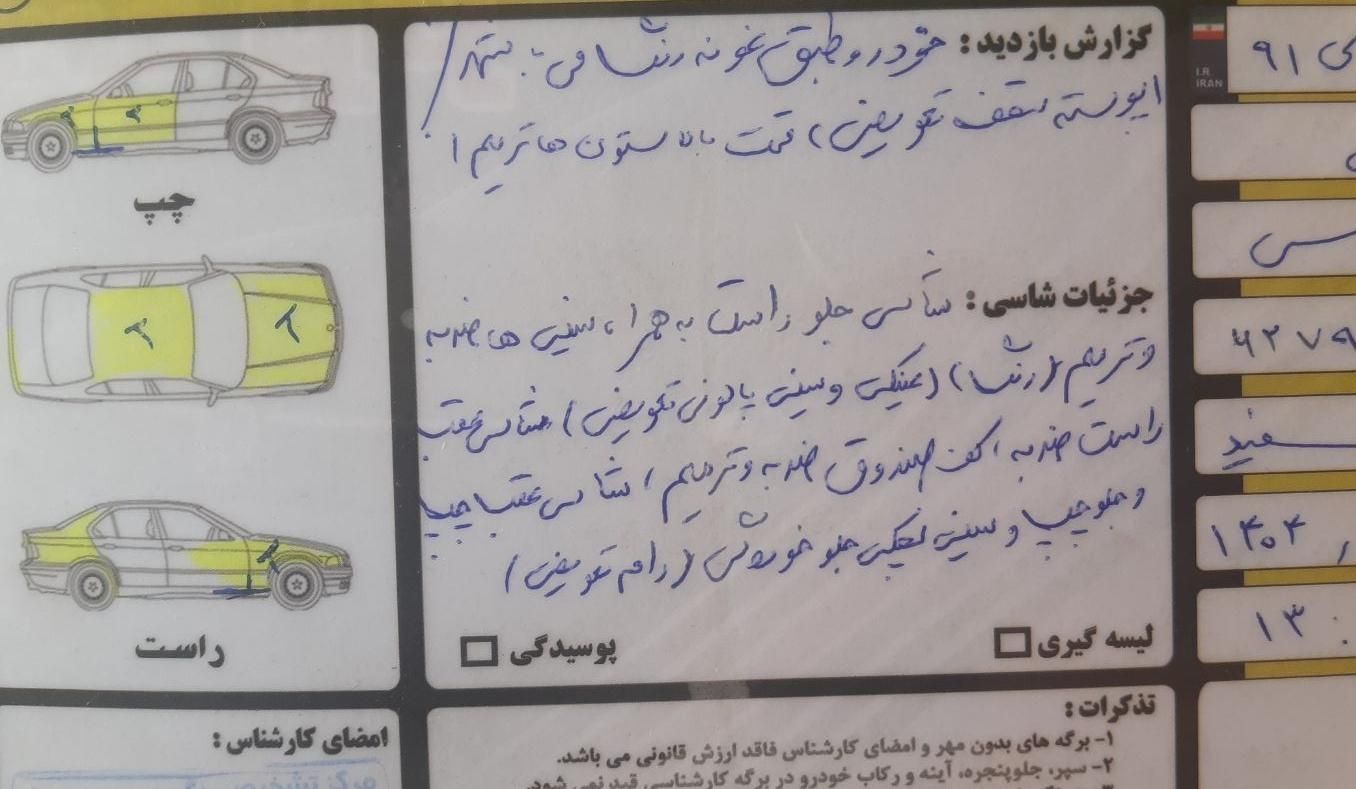 گزارش بازدید : خودرو طبق نمونه رنگ می
پوسته سقف تعویض ، قسمت بالا ستون ها ترمیم
جزئیات شاسی : شاسی جلو راست به همراه سینی ها ضربه
و ترمیم (رنگ) (عینکی و سینی پالونی تعویض) شاسی عقب
راست ضربه ، کف صندوق ضربه و ترمیم ، شاسی عقب چپ
و جلو چپ و سینی لچکی جلو خوردگی (رام تعویض)
لیسه گیری
پوسیدگی
چپ
راست
امضای کارشناس :
مرکز تشخیص
تذکرات :
۱- برگه های بدون مهر و امضای کارشناس فاقد ارزش قانونی می باشد.
۲- سپر، جلوپنجره، آینه و رکاب خودرو در برگه کارشناسی قید نمی شود.
I.R.
IRAN
۹۱
سفید
۱۴۰۴
۱۳